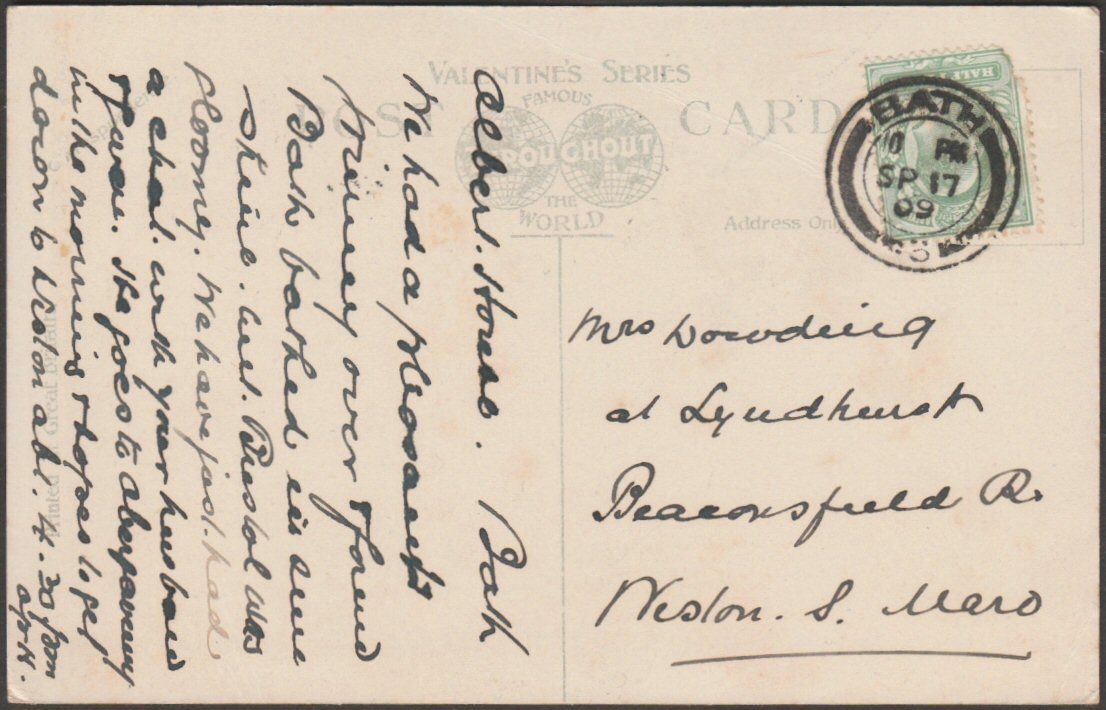 VALENTINE'S SERIES
POST CARD
FAMOUS
THROUGHOUT
THE
WORLD
Address Only
HALF
BATH
10 PM
SP 17
09
Albert House. Bath
We had a pleasant
journey over & found
Bath bathed in sun
shine. but. Bristol was
gloomy. We have just. had
a chat. with your husband
& Juan. He goes to Abergavenny
in the morning & hopes to get
down to Weston abt. 4.30 pm
Mrs Dowding
at Lyndhurst
Beaconsfield Rd
Weston. S. Mare
Printed Great Britain